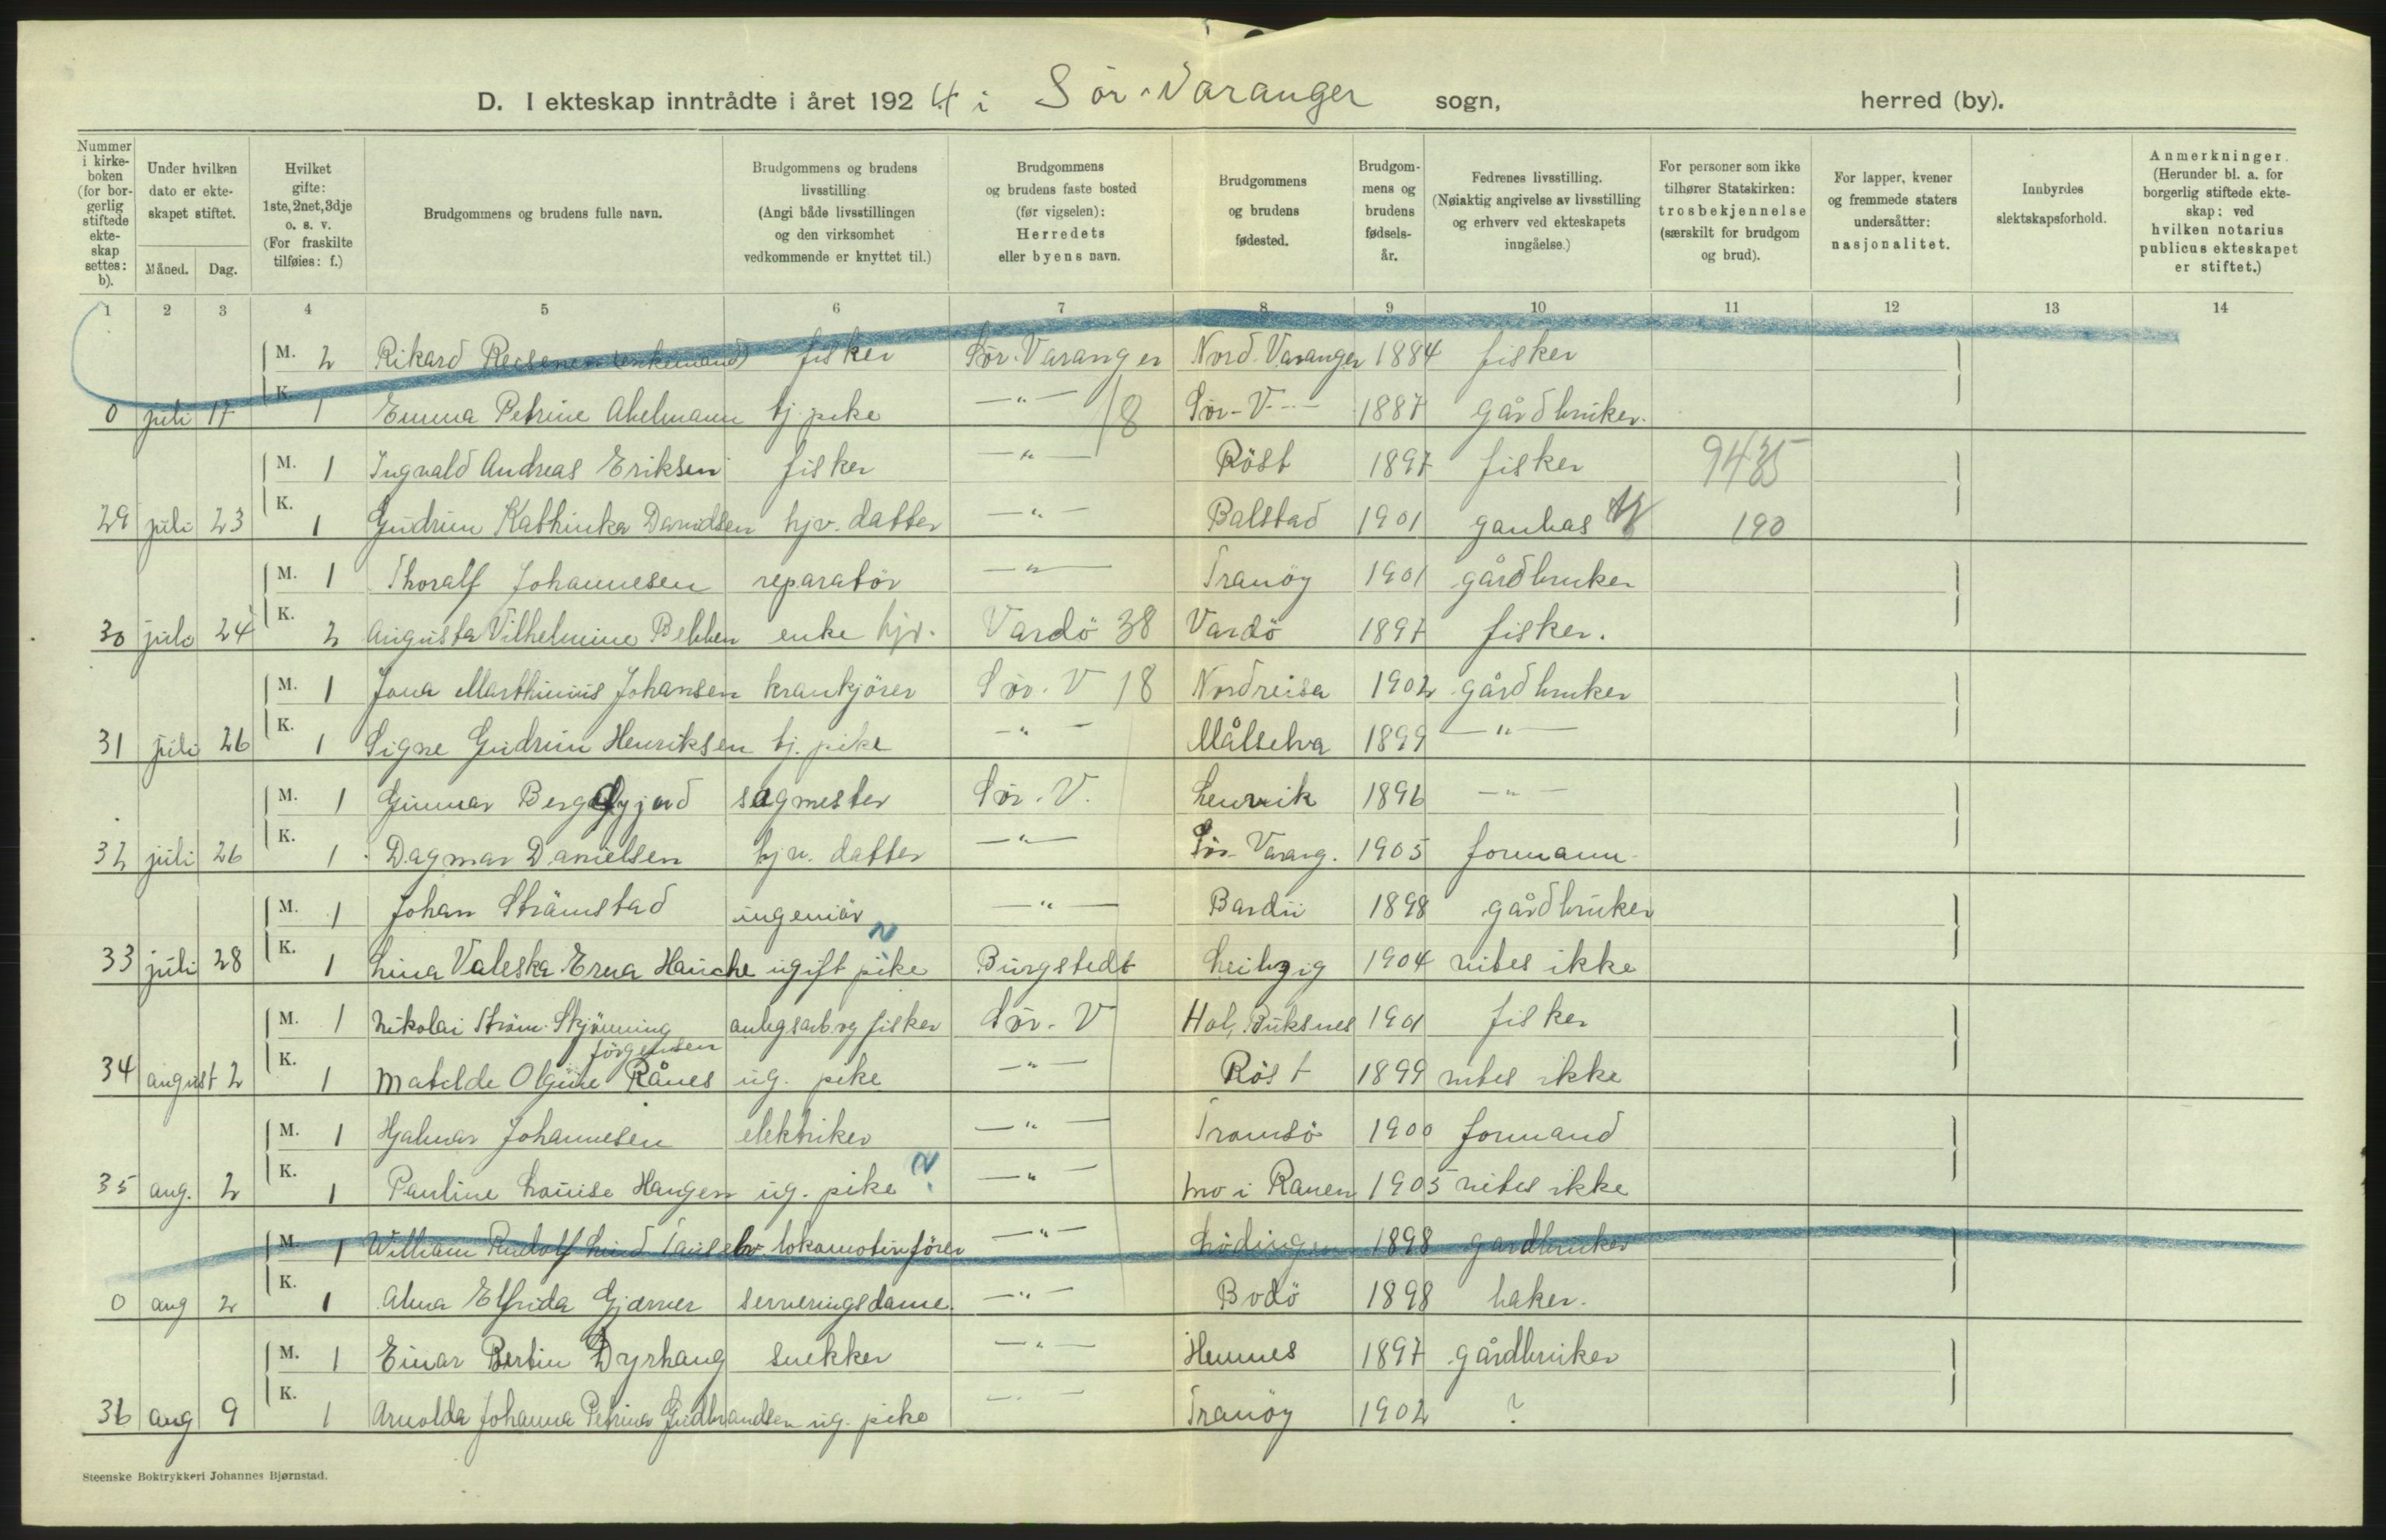 D. I ekteskap inntrådte i året 1924 i Sör-Varanger sogn, herred (by).
Nummer i kirkeboken (for borgerlig stiftede ekteskap settes: b).
Under hvilken dato er ekteskapet stiftet.
Måned. Dag.
Hvilket gifte: 1ste, 2net, 3dje o. s. v. (For fraskilte tilføies: f.)
Brudgommens og brudens fulle navn.
Brudgommens og brudens livsstilling (Angi både livsstillingen og den virksomhet vedkommende er knyttet til.)
Brudgommens og brudens faste bosted (før vigselen): Herredets eller byens navn.
Brudgommens og brudens fødested.
Brudgommens og brudens fødselsår.
Fedrenes livsstilling. (Nøiaktig angivelse av livsstilling og erhverv ved ekteskapets inngåelse.)
For personer som ikke tilhører Statskirken: trosbekjennelse (særskilt for brudgom og brud).
For lapper, kvener og fremmede staters undersåtter: nasjonalitet.
Innbyrdes slektskapsforhold.
Anmerkninger. (Herunder bl. a. for borgerlig stiftede ekteskap: ved hvilken notarius publicus ekteskapet er stiftet.)
1 2 3 4 5 6 7 8 9 10 11 12 13 14
M. 2 Rikard (enkemand) fisker Sör-Varanger Nord-Varanger 1884 fisker
0 juli 17 K. 1 Emma Petrine Abelmann tj. pike -"- 18 Sör-V- 1887 gårdbruker.
M. 1 Ingvald Andreas Eriksen fisker -"- Röst 1897 fisker 9435
29 juli 23 K. 1 Gudrun Kathinka Davidsen hjv. datter -"- Balstad 1901 190
M. 1 Thoralf Johannesen reparatör -"- Tranöy 1901 gårdbruker
30 juli 24 K. 2 Augusta Vilhelmine Bekken enke hjv. Vardö 38 Vardö 1897 fisker.
M. 1 Jona Marthinius Johansen krankjörer Sör. V 18 Nordreisa 1902 gårdbruker
31 juli 26 K. 1 Signe Gudrun Henriksen tj. pike -"- Målselva 1899 -"-
M. 1 Gunnar Berg sagmester Sör. V. Lenvik 1896 -"-
32 juli 26 K. 1 Dagmar Danielsen hjv. datter -"- Sör-Varang. 1905 formann
M. 1 Johan Strömstad ingeniör -"- Bardu 1898 gårdbruker
33 juli 28 K. 1 Lina Valeska Erna Hauche ugift pike Burgstedt Leibzig 1904 vites ikke
M. 1 Nikolai Ström. Skjönning anlegsarb. og fisker Sör. V Hol, Buksnes 1901 fisker
Jörgensen
34 august 2 K. 1 Matilde Olgine Rånes ug. pike -"- Röst 1899 vites ikke
M. 1 Hjalmar Johannesen elektriker -"- Tromsö 1900 formand
35 aug. 2 K. 1 Pauline Louise Haugen ug. pike ? -"- Mo i Ranen 1905 vites ikke
M. 1 William Rudolf Lind lokomotivförer -"- Lödingen 1898 gardbruker
0 aug 2 K. 1 Alma Elfrida Gjærver serveringsdame. -"- Bodö 1898 baker.
M. 1 Einar Bertin Dyrhaug snekker -"- Hemnes 1897 gårdbruker
36 aug 9 K. 1 Arnolda Johanna Petrina Gudbrandsen ug. pike -"- Tranöy 1902 ?
Steenske Boktrykkeri Johannes Bjørnstad.